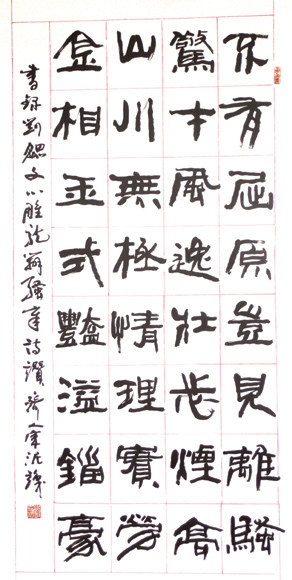 不有屈原豈見離騷
驚才風逸壯志煙高
山川無極情理實勞
金相玉式豔溢錙豪
書錄劉勰文心雕龍辯騷章詩讚